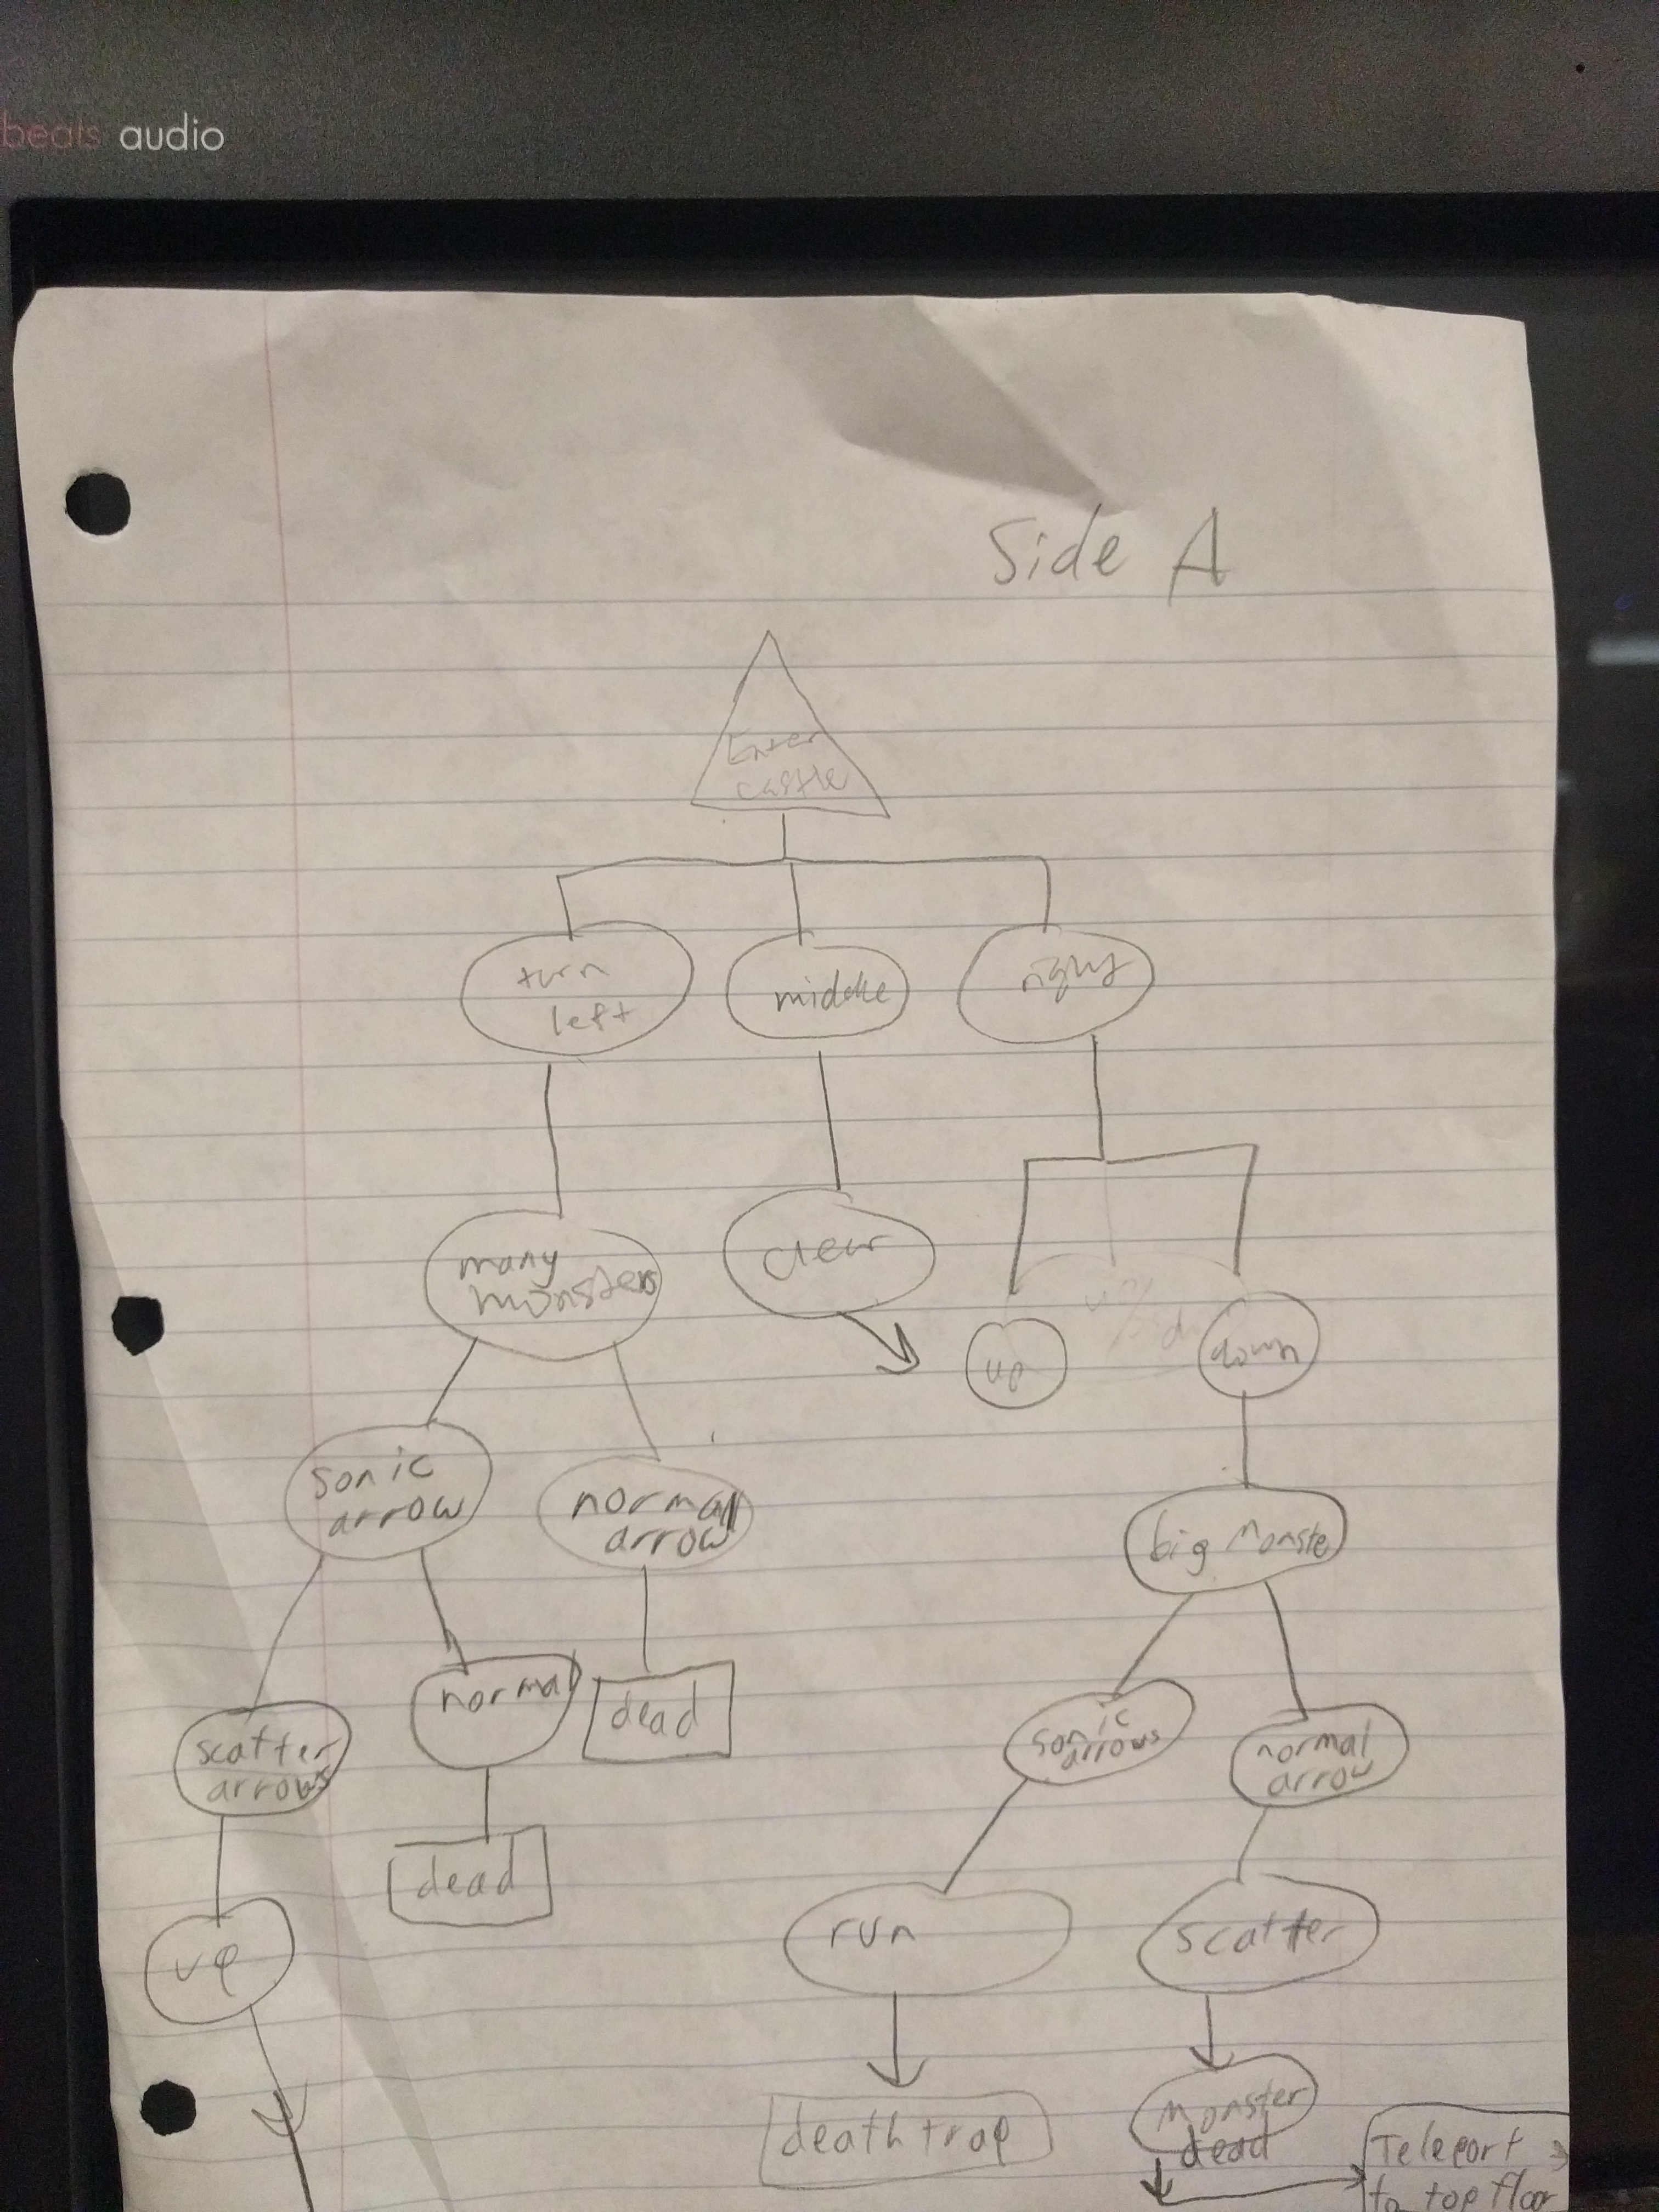 beats audio
Side A
Enter
castle
turn
left
middle
right
many
monsters
clear
up
down
sonic
arrow
normal
arrow
big monste
scatter
arrows
normal
dead
sonic
arrows
normal
arrow
dead
up
run
scatter
death trap
Monster
dead
Teleport
to top floor